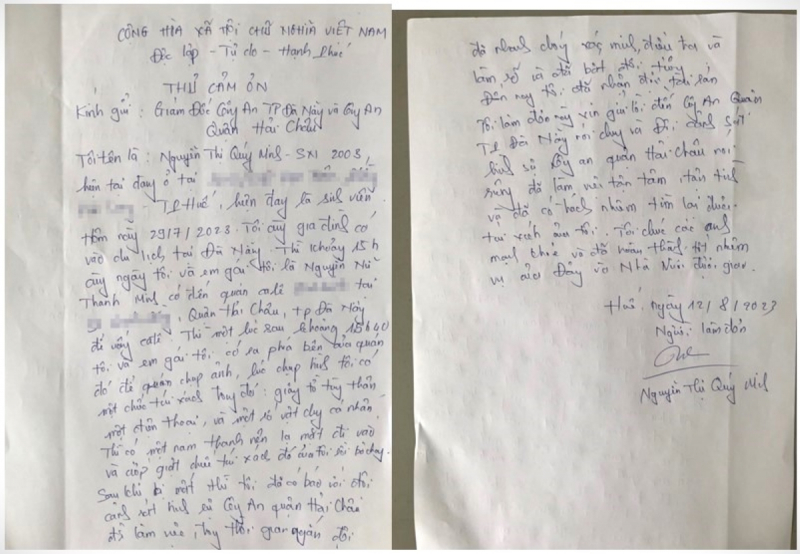 CÔNG HÒA XÃ HÔI CHỦ NGHĨA VIẾT NAM
Đôc lập - Tự do - Hạnh phúc
THƯ CẢM ƠN
Kính gửi : Giám Đốc Công An TP Đà Nẵng và Công An
Quân Hải Châu
Tôi tên là : Nguyễn Thị Quý Minh - SN 2003
hiện tại đang ở tại
TP Huế, hiện đang là sinh viên
Hôm ngày 29/7/2023. Tôi cùng gia đình có
vào du lịch tại Đà Nẵng. Thì khoảng 15h
cùng ngày tôi và em gái tôi là Nguyễn Nữ
Thanh Minh có đến quán café tại
Quân Hải Châu, Tp Đà Nẵng
để uống café. Thì một lúc sau khoảng 15h40
tôi và em gái tôi có ra phía bên của quán
đó để quán chụp ảnh, lúc chụp hình tôi có
một chiếc túi xách trong đó : giấy tờ tùy thân
một điện thoại, và một số vật dụng cá nhân.
Thì có một nam thanh niên lạ mặt đi vào
và cướp giật chiếc túi xách đó của tôi rồi bỏ chạy.
Sau khi bị mất thì tôi đã có báo với đội
cảnh sát hình sự Công An quận Hải Châu
để làm việc, trong thời gian ngắn đội
đã nhanh chóng xác minh, điều tra và
làm rõ và đã bắt đối tượng
Đến nay tôi đã nhận được tài sản
Tôi làm đơn này xin gửi lời đến Công An Quân
TP Đà Nẵng nói chung và Đội cảnh sát
hình sự Công an quận Hải Châu nói
riêng đã làm việc tận tâm, tận tình
và đã có trách nhiệm tìm lại được
túi xách của tôi. Tôi chúc các anh
mạnh khỏe và đã hoàn thành tốt nhiệm
vụ của Đảng và Nhà Nước được giao.
Huế, ngày 12/8/2023
Người làm đơn
Nguyễn Thị Quý Minh